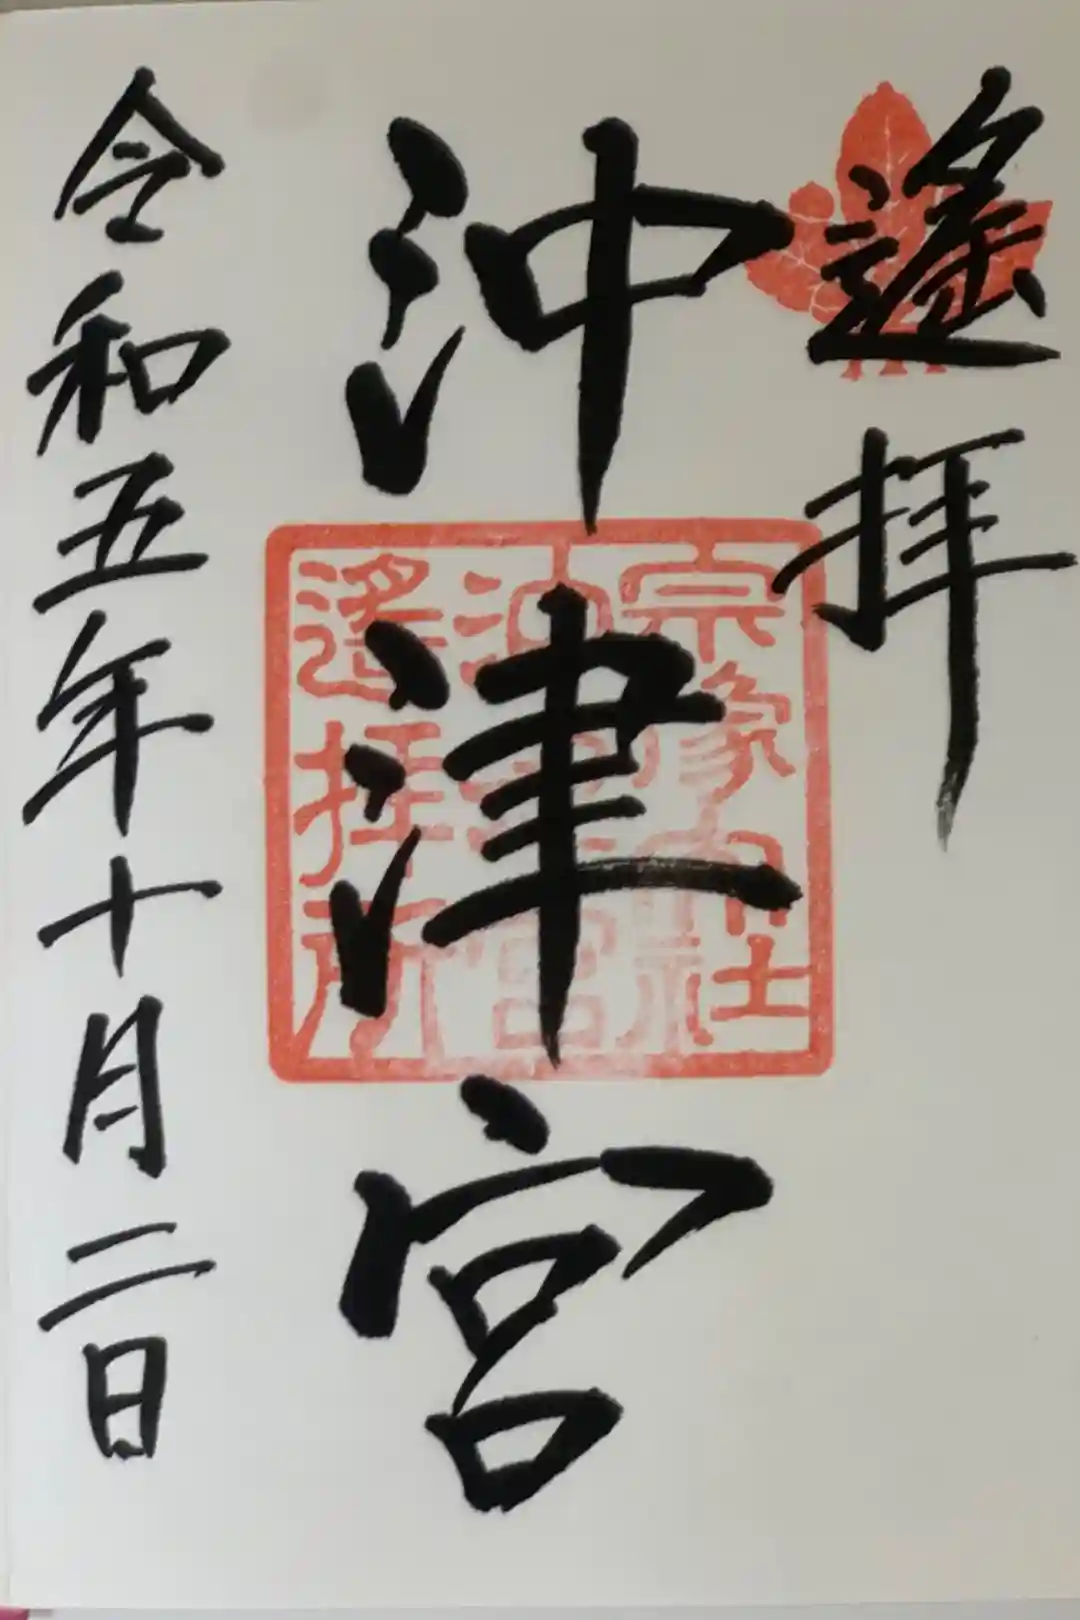 遥拝
沖津宮
令和五年十月二日
宗象大社
沖津宮
遥拝所